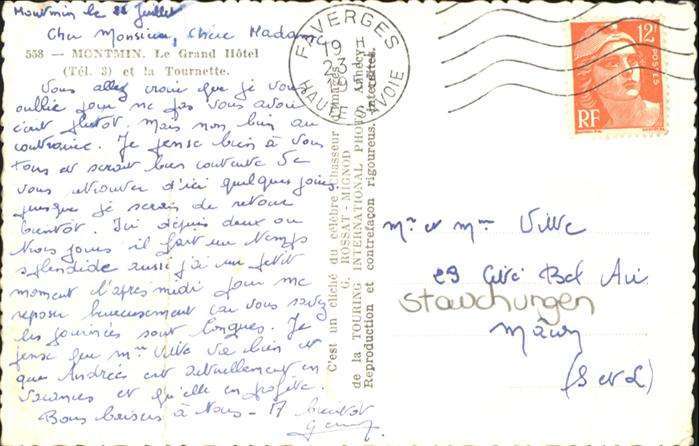 Montmin le 22 Juillet
Cher Monsieur, Chère Madame
558 — MONTMIN. Le Grand Hôtel
(Tél. 3) et la Tournette.
Vous allez croire que je vous
oublie pour ne pas vous avoir
écrit plutot. Mais non bien au
contraire. Je pense bien à vous
tous et serait bien contente de
vous retrouver d'ici quelques jours,
puisque je serais de retour
bientôt. Ici depuis deux ou
trois jours il fait un temps
splendide aussi j'ai un petit
moment l'après midi pour me
reposer heureusement car vous savez
les journées sont longues. Je
pense que Mme Vitte va bien et
que Andrée est actuellement en
vacances et qu'elle en profite.
Bons baisers à tous - A bientôt
C'est un cliché du célèbre Chasseur d'Images
G. ROSSAT-MIGNOD
de la TOURING INTERNATIONAL PHOTO, Annecy
Reproduction et contrefaçon rigoureus. interdites.
FAVERGES
19 H
23
HAUTE SAVOIE
12F
POSTES
RF
Mr et Mme Vitte
29 Cité Bel Air
stauchungen
Mâcon
(S et L)